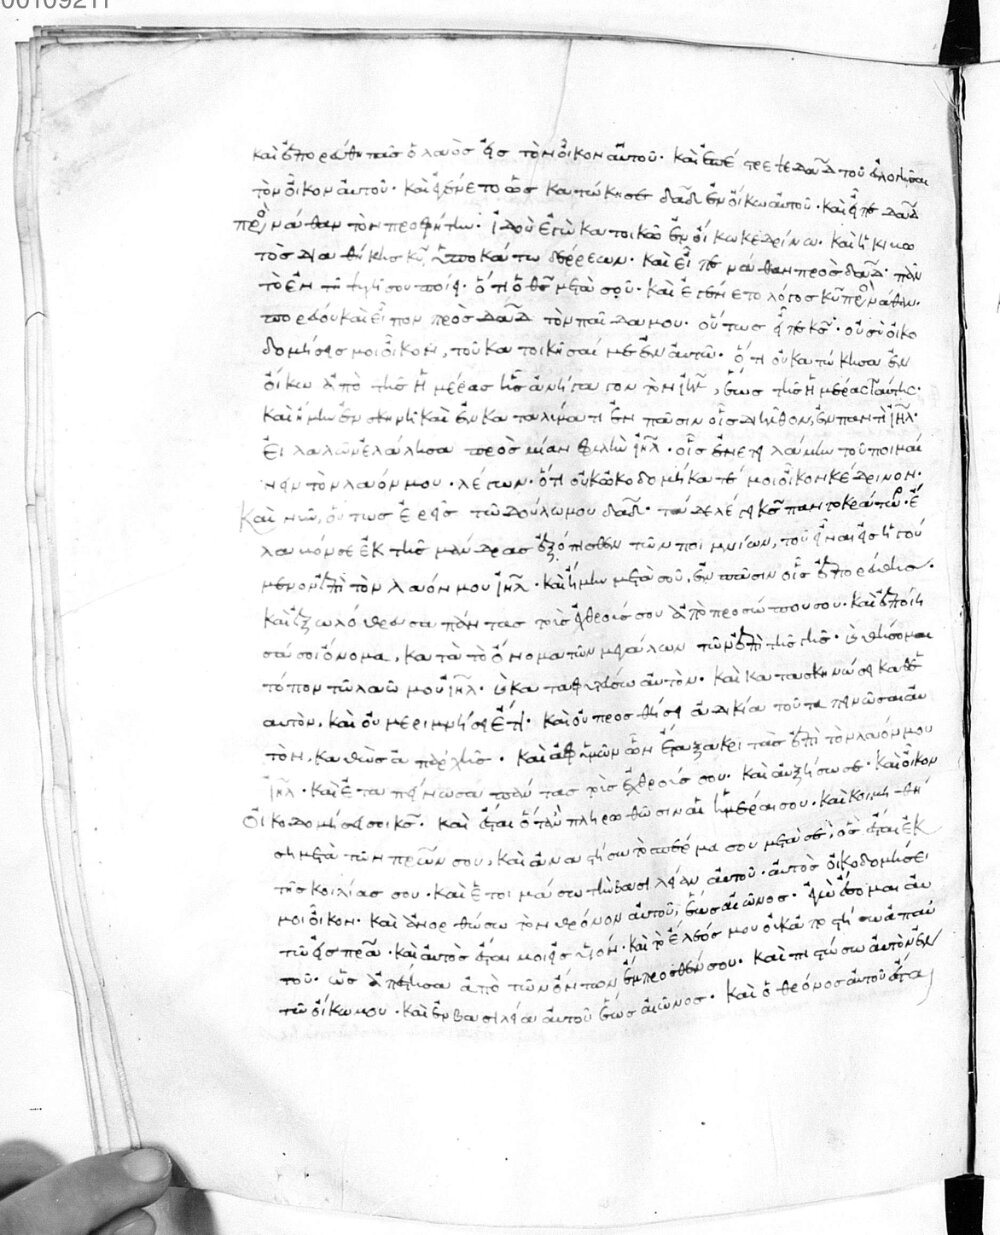 00109211
καὶ ἐπορεύθη πᾶσ ὁ λαὸσ εἰσ τὸν οἶκον αὐτοῦ· καὶ ἐπέστρεψε δα̅δ τοῦ εὐλογῆσαι
τὸν οἶκον αὐτοῦ· καὶ ἐγένετο ὡσ κατώκησε δα̅δ ἐν οἴκω αὐτοῦ· καὶ εἶπε δα̅δ
πρὸσ νάθαν τὸν προφήτην· ἰδοὺ ἐγὼ κατοικῶ ἐν οἴκω κεδρίνω· καὶ ἡ κιβω
τὸσ διαθήκησ κ̅υ ὑποκάτω δέρεων· καὶ εἶπε νάθαν πρὸσ δα̅δ· πᾶν
τὸ ἐν τῆ ψυχῆ σου ποίει· ὅτι ὁ θ̅σ μετὰ σοῦ· καὶ ἐγένετο λόγοσ κ̅υ πρὸσ νάθαν·
πορεύου καὶ εἶπον πρὸσ δα̅δ τὸν παῖδα μου· οὕτωσ εἶπε κ̅σ· οὐ σὺ οἰκο
δομήσεισ μοι οἶκον, τοῦ κατοικῆσαί με ἐν αὐτῶ· ὅτι οὐ κατώκησα ἐν
οἴκω ἀπὸ τῆσ ἡμέρασ ἧσ ἀνήγαγον τὸν ι̅η̅λ, ἕωσ τῆσ ἡμέρασ ταύτησ·
καὶ ἤμην ἐν σκηνῆ καὶ ἐν καταλύματι ἐν πᾶσιν οἷσ διῆλθον, ἐν παντὶ ι̅η̅λ·
εἰ λαλῶν ἐλάλησα πρὸσ μίαν φυλὴν ι̅η̅λ· οἷσ ἐνετειλάμην τοῦ ποιμαί
νειν τὸν λαόν μου· λέγων· ὅτι οὐκ ὠκοδομήκατέ μοι οἶκον κέδρινον·
Καὶ νῦν, οὕτωσ ἐρεῖσ τῶ δούλω μου δα̅δ· τάδε λέγει κ̅σ παντοκράτωρ· ἔ
λαβόν σε ἐκ τῆσ μάνδρασ ἐξόπισθεν τῶν ποιμνίων, τοῦ εἶναι εἰσ ἡγού
μενον ἐπὶ τὸν λαόν μου ι̅η̅λ· καὶ ἤμην μετὰ σοῦ, ἐν πᾶσιν οἷσ ἐπορεύθησ·
καὶ ἐξωλόθρευσα πάντασ τοὺσ ἐχθρούσ σου ἀπὸ προσώπου σου· καὶ ἐποίη
σά σοι ὄνομα, κατὰ τὸ ὄνομα τῶν μεγάλων τῶν ἐπὶ τῆσ γῆσ· καὶ θήσομαι
τόπον τῶ λαῶ μου ι̅η̅λ· καὶ καταφυτεύσω αὐτὸν· καὶ κατασκηνώσει καθ'
αυτὸν, καὶ οὐ μεριμνήσει ἔτι· καὶ οὐ προσθήσει ἀδικία τοῦ ταπεινῶσαι αὐ
τὸν, καθὼσ ἀπαρχῆσ· καὶ ἀφ ἡμερῶν ὧν ἔταξα κριτὰσ ἐπὶ τὸν λαόν μου
ι̅η̅λ· καὶ ἐταπείνωσα πάντασ τοὺσ ἐχθρούσ σου· καὶ αὐξήσω σε· καὶ οἶκον
Οἰκοδομήσει σοι κ̅σ· καὶ ἔσται ὅταν πληρωθῶσιν αἱ ἡμέραι σου· καὶ κοιμηθή
ση μετὰ τῶν πρ̅ων σου, καὶ ἀναστήσω τὸ σπέρμα σου μετὰ σὲ, ὃσ ἔσται ἐκ
τῆσ κοιλίασ σου· καὶ ἑτοιμάσω τὴν βασιλείαν αὐτοῦ· αὐτὸσ οἰκοδομήσει
μοι οἶκον· καὶ ἀνορθώσω τὸν θρόνον αὐτοῦ, ἕωσ αἰῶνοσ· ἐγὼ ἔσομαι αὐ
τῶ εἰσ πρ̅α· καὶ αὐτὸσ ἔσται μοι εἰσ υἱόν· καὶ τὸ ἔλεόσ μου οὐκ ἀποστήσω ἀπ αὐ
τοῦ· ὡσ ἀπέστησα ἀπὸ τῶν ὄντων ἔμπροσθέν σου· καὶ πιστώσω αὐτὸν ἐν
τῶ οἴκω μου· καὶ ἐν βασιλεία αὐτοῦ ἕωσ αἰῶνοσ· καὶ ὁ θρόνοσ αὐτοῦ ἔσται